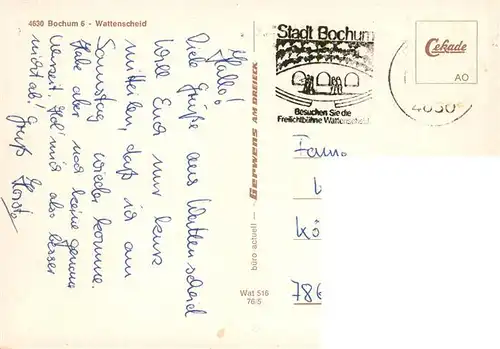 4630 Bochum 6 - Wattenscheid
Hallo!
Viele Grüße aus Wattenscheid
Will Euch nur kurz
mitteilen, daß ich am
Samstag wieder komme.
Habe aber noch keine genaue
Uhrzeit. Hol mich also besser
nicht ab! Gruß Horst
büro actuell - Gerwens AM DREIECK
Wat 516
76/5
Stadt Bochum
Besuchen Sie die
Freilichtbühne Wattenscheid
4630
Cekade
AO
Fam.
Kö
786